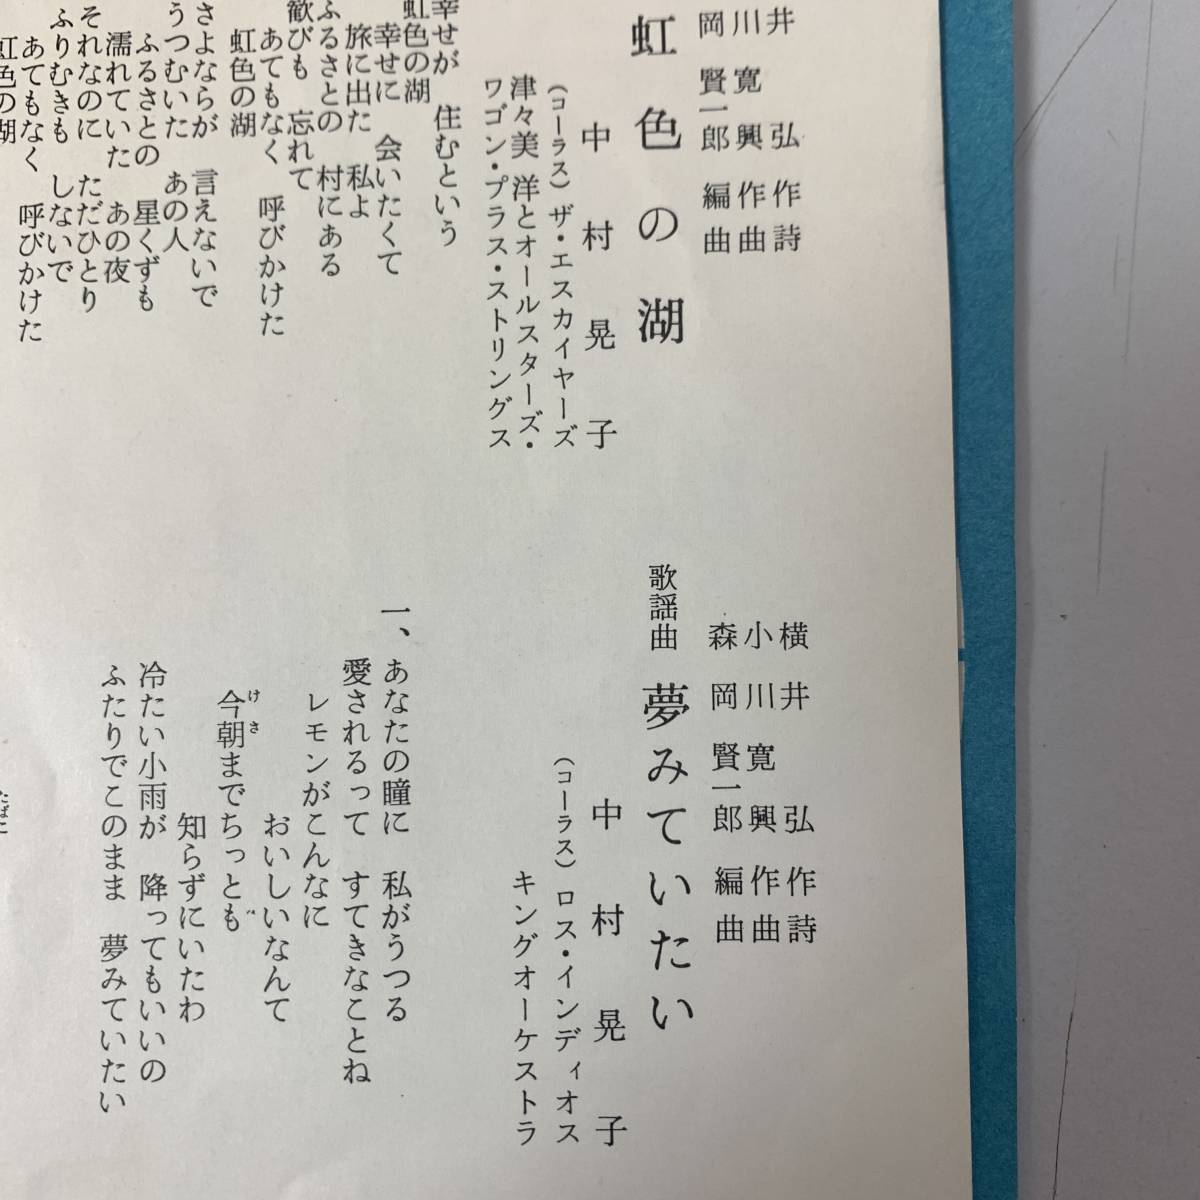 井 弘 作詩
川 寛 興 作曲
岡 賢一郎 編曲
虹色の湖
中村晃子
(コーラス) ザ・エスカイヤーズ
津々美 洋とオールスターズ・
ワゴン・プラス・ストリングス
幸せが 住むという
虹色の湖
幸せに 会いたくて
旅に出た 私よ
ふるさとの 村にある
歓びも 忘れて
あてもなく 呼びかけた
虹色の湖
さよならが 言えないで
うつむいた あの人
ふるさとの 星くずも
濡れていた あの夜
それなのに ただひとり
ふりむきも しないで
あてもなく 呼びかけた
虹色の湖
横井 弘 作詩
小川寛興 作曲
森岡賢一郎 編曲
歌謡曲 夢みていたい
中村晃子
(コーラス) ロス・インディオス
キングオーケストラ
一、あなたの瞳に 私がうつる
愛されるって すてきなことね
レモンがこんなに
おいしいなんて
今朝までちっとも
けさ
知らずにいたわ
冷たい小雨が 降ってもいいの
ふたりでこのまま 夢みていたい
たばこ